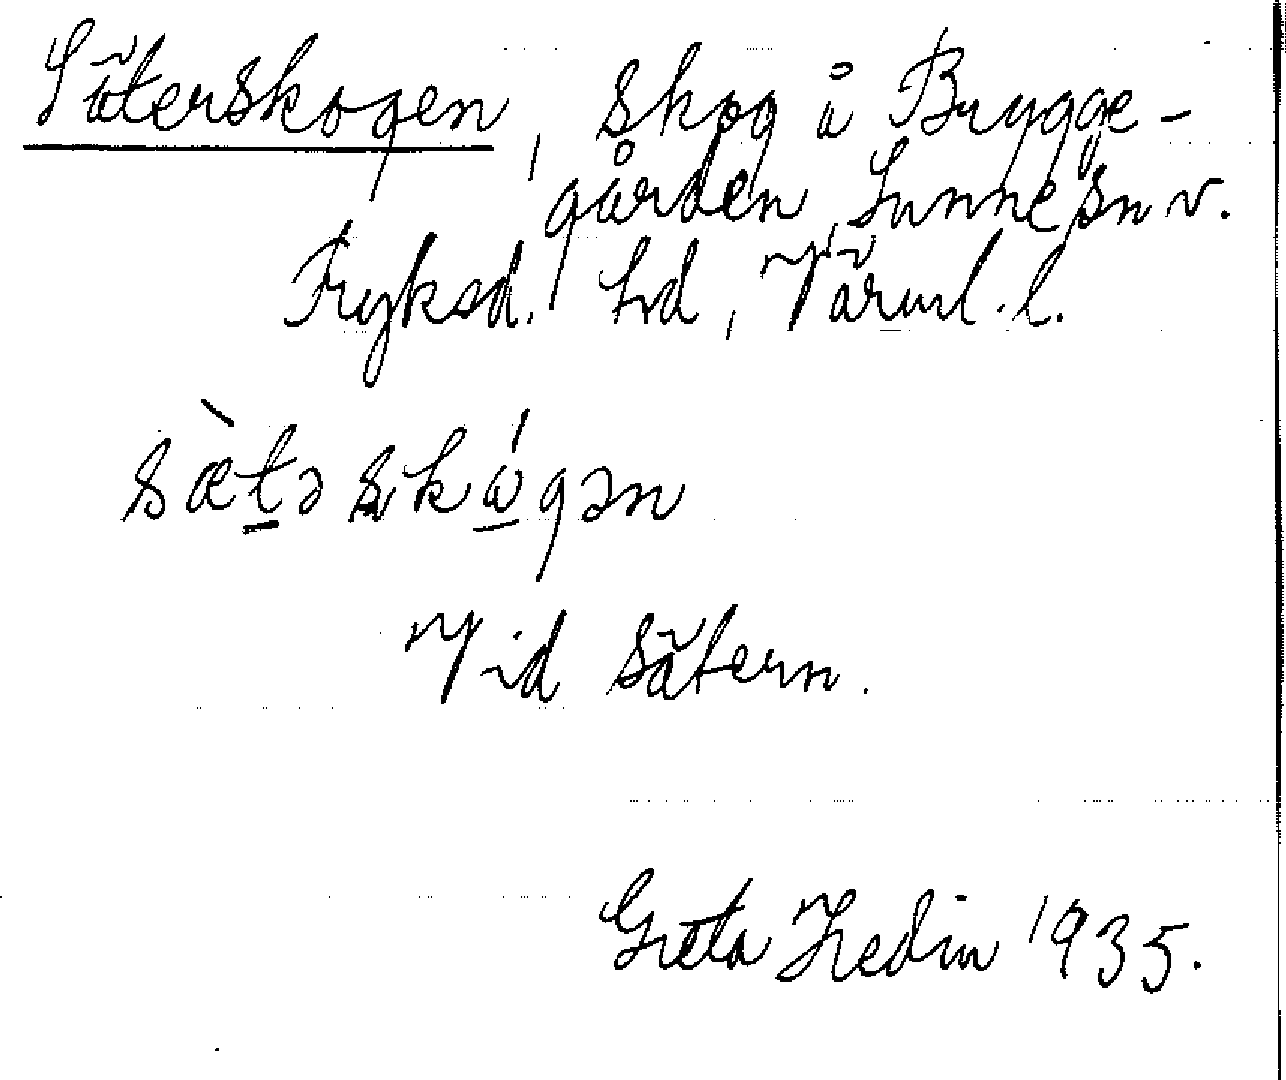 Säterskogen, skog å Brygge-
gården, Sunne sn v.
Fryksd. hd, Värml. l.
sæ̀təskẃgən
Vid Sätern.
Greta Hedin 1935.